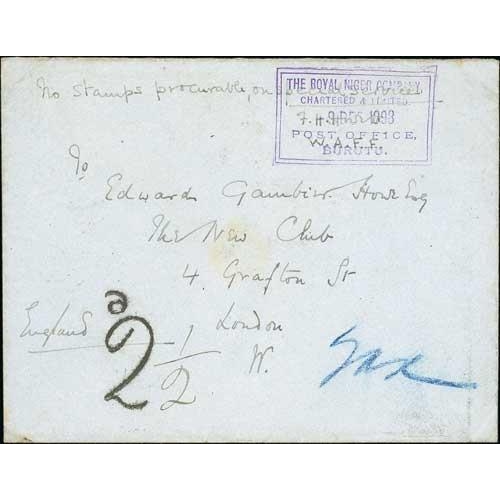 No stamps procurable, on special service
THE ROYAL NIGER COMPANY
CHARTERED & LIMITED.
9 DEC 1898
POST OFFICE,
W.A.F.F.
BURUTU.
To
Edward Gambier Howe Esq
The New Club
4. Grafton St
London
W.
England
2 1/2